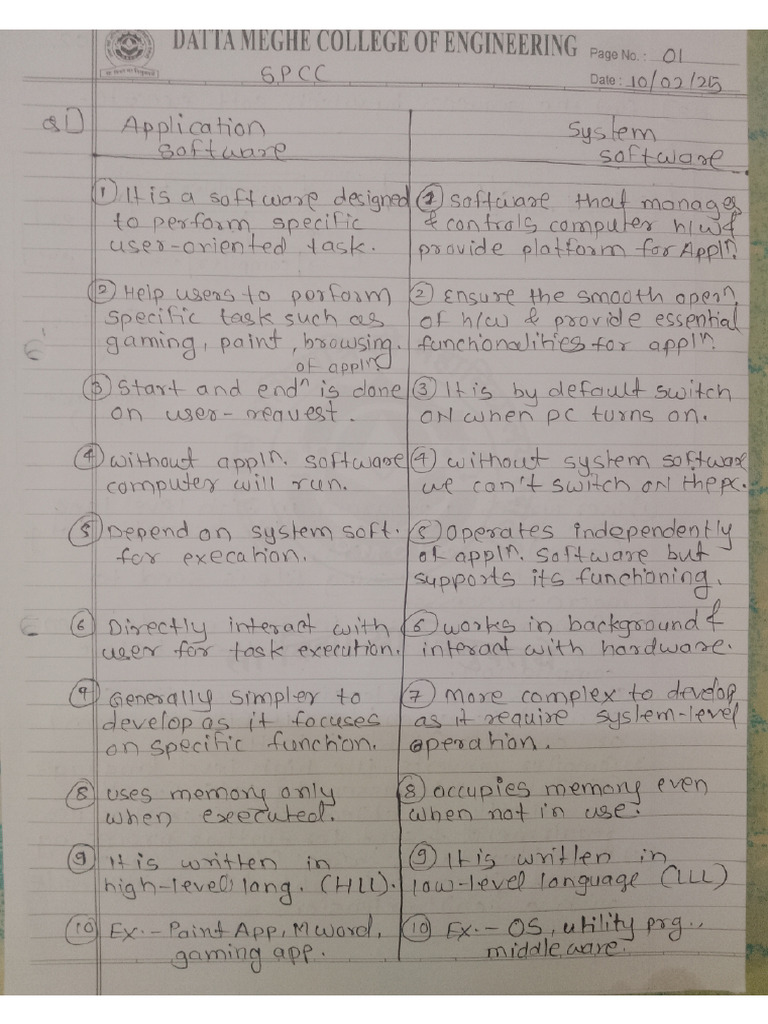 DATTA MEGHE COLLEGE OF ENGINEERING
Page No. : 01
SPCC
Date : 10/02/25
Q1)
Application
software
① It is a software designed
to perform specific
user-oriented task.
② Help users to perform
specific task such as
gaming, paint, browsing.
of appln
③ Start and endn is done
on user-request.
④ without appln. software
computer will run.
⑤ Depend on system soft.
for execation.
⑥ Directly interact with
user for task execution.
⑦ Generally simpler to
develop as it focuses
on specific function.
⑧ uses memory only
when executed.
⑨ It is written in
high-level lang. (HLL).
⑩ Ex.- Paint App, M word,
gaming app.
System
software
① software that manages
& controls computer h/w &
provide platform for Appln.
② Ensure the smooth opern
of h/w & provide essential
functionalities for appln.
③ It is by default switch
ON when PC turns on.
④ without system software
we can't switch ON the pc.
⑤ Operates independently
of appln. software but
supports its functioning.
⑥ works in background &
interact with hardware.
⑦ More complex to develop
as it require system-level
operation.
⑧ occupies memory even
when not in use.
⑨ It is written in
low-level language (LLL)
⑩ Ex. - OS, utility prg.,
middleware.